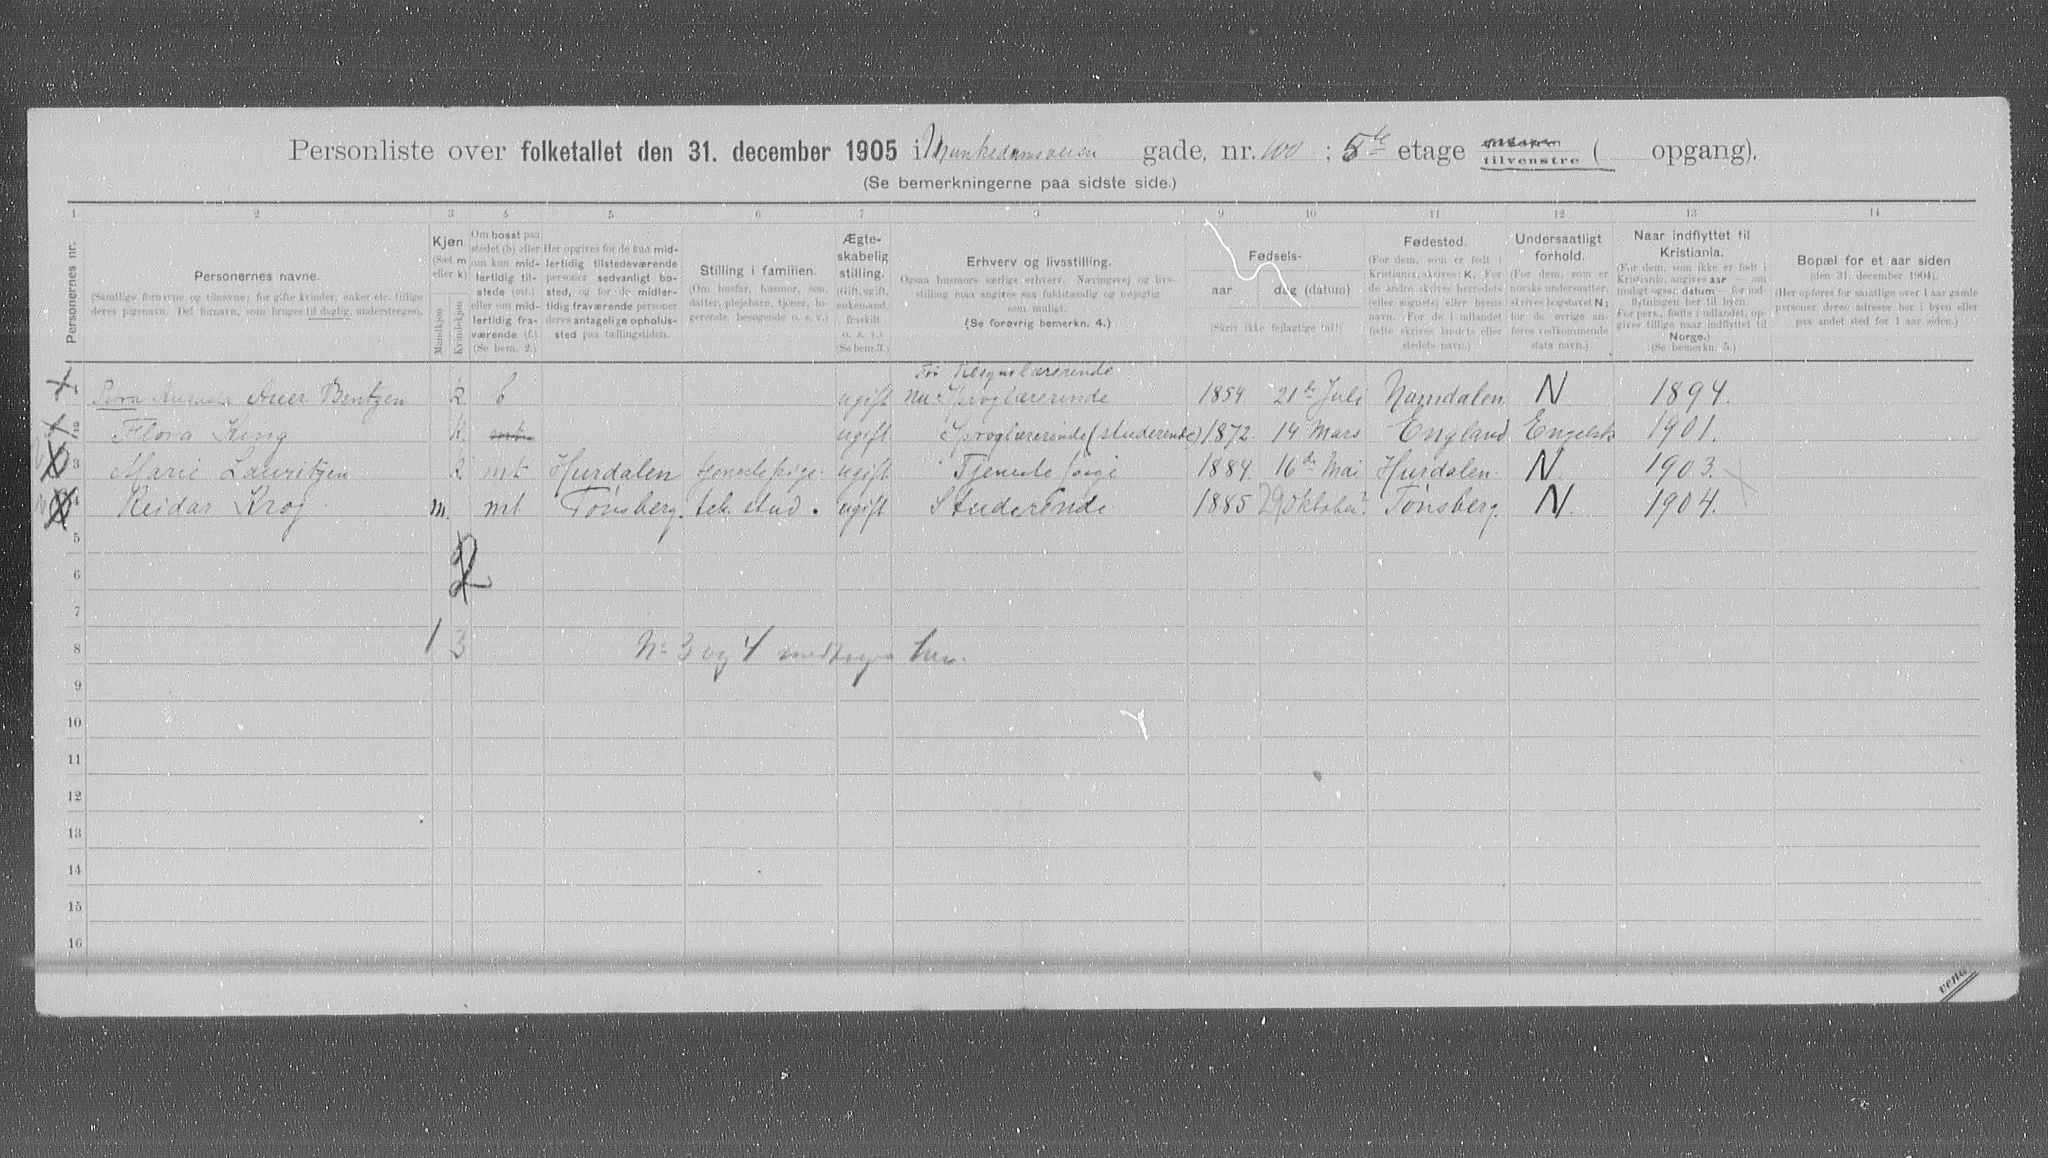 Personliste over folketallet den 31. december 1905 i Munkedamsveien gade, nr. 100 ; 5te etage tilvenstre ( opgang).
(Se bemerkningerne paa sidste side.)
1 2 3 4 5 6 7 8 9 10 11 12 13 14
Personernes nr.
Personernes navne.
(Samtlige fornavne og tilnavne; for gifte kvinder, enker etc. tillige deres pigenavn. Det fornavn, som bruges til daglig, understreges).
Kjøn.
(Sæt m eller k)
Mandkjøn
Kvindekjøn
Om bosat paa stedet (b) eller om kun midlertidig tilstede (mt.) eller om midlertidig fraværende (f.) (Se bem. 2.)
Her opgives for de kun midlertidig tilstedeværende personer sedvanligt bosted, og for de midlertidig fraværende personer deres antagelige opholdssted paa tællingstiden.
Stilling i familien.
(Om husfar, husmor, søn, datter, plejebarn, tjener, logerende, besøgende o. s. v.)
Ægteskabelig stilling.
(Gift, ugift, enkemand, fraskilt o. s. v.)
(Se bem. 3.)
Erhverv og livsstilling.
Ogsaa husmors særlige erhverv. Næringsvej og livsstilling maa angives saa fuldstændig og nøjagtig som muligt.
(Se forøvrig bemerkn. 4.)
Fødsels-
aar dag (datum)
(Skriv ikke fejlagtige tal!)
Fødested.
(For dem, som er født i Kristiania, skrives: K. For de andre skrives herredets (eller sognets) eller byens navn. For de i udlandet fødte skrives landets eller stedets navn.)
Undersaatligt forhold.
(For dem, som er norske undersaatter, skrives bogstavet N; for de øvrige anføres vedkommende stats navn.)
Naar indflyttet til Kristiania.
(For dem, som ikke er født i Kristiania, angives aar — om muligt ogsaa datum — for indflytningen her til byen. For pers., fødte i udlandet, opgives tillige naar indflyttet til Norge.)
(Se bemerkn. 5.)
Bopæl for et aar siden
(den 31. december 1904).
(Her opføres for samtlige over 1 aar gamle personer deres adresse her i byen eller paa andet sted for 1 aar siden.)
Før Tilsynslærerinde
Bentzen k b ugift Nu Sproglærerinde 1859 21de Juli Namdalen N 1894.
Flora King k. mt. ugift Sproglærerinde (studerende) 1872. 14 Mars England Engelsk 1901.
3 Marie Lauritzen k mt Hurdalen tjenestepige. ugift Tjenestepige 1884 16de Mai Hurdalen. N. 1903.
4 Reidar Krog. m. mt Tønsberg. tek. stud. ugift Studerende 1885 29 Oktober Tønsberg. N. 1904.
5
6 2
7
1 3
8 No 3 og 4 medtages her.
9
10
11
12
13
14
15
16
vend